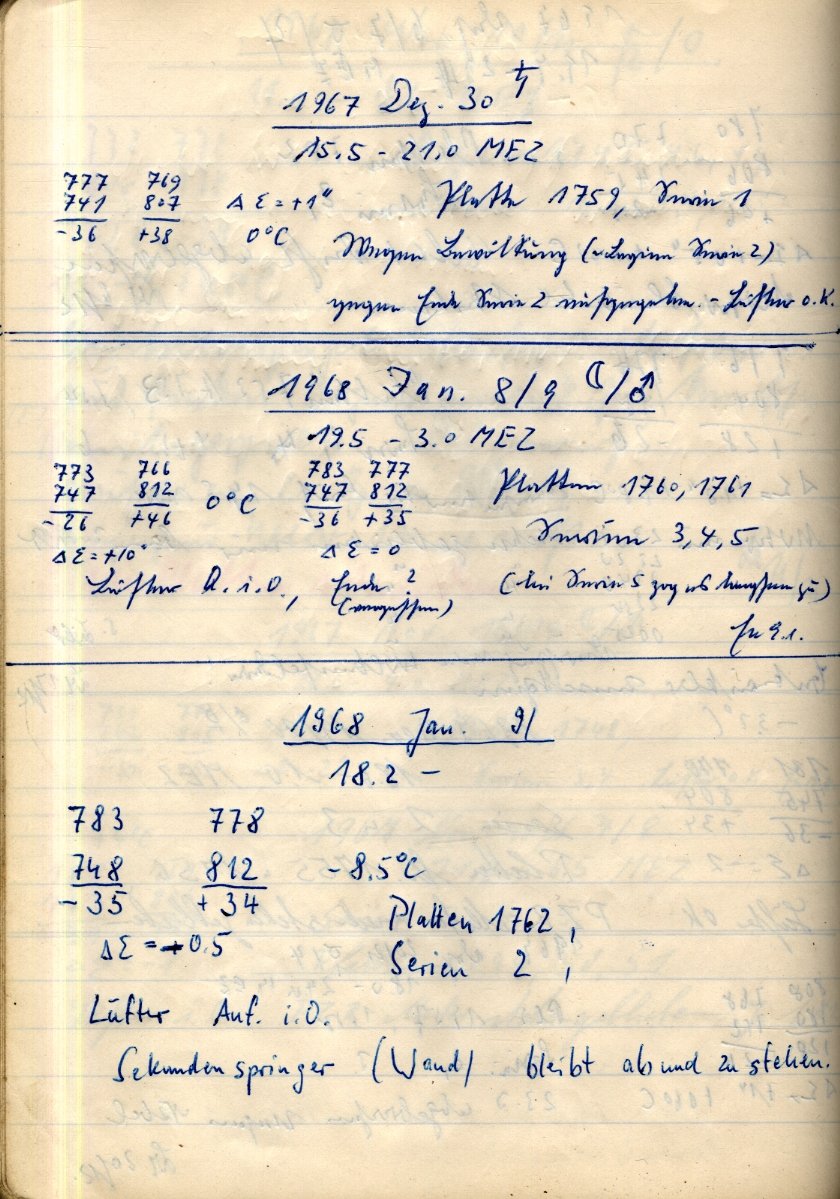 1967 Dez. 30 ♄
15.5 – 21.0 MEZ
777 769
741 807 Δ Σ = +1" Platte 1759, Serie 1
-36 +38 0°C
Wegen Bewölkung (~Beginn Serie 2)
gegen Ende Serie 2 aufgegeben. – Lüfter o.K.
1968 Jan. 8/9 ☾/♂
19.5 – 3.0 MEZ
773 766 783 777
747 812 0°C 747 812 Platten 1760, 1761
-26 +46 -36 +35
Serien 3, 4, 5
Δ Σ = +10" Δ Σ = 0
Lüfter A. i.O., Ende ? (bei Serie 5 zog es langsam zu)
(vergessen)
9.1.
1968 Jan. 9/
18.2 –
783 778
748 812 -8.5°C
-35 +34
Platten 1762,
Δ Σ = +0.5
Serien 2,
Lüfter Anf. i.O.
Sekundenspringer (Wand) bleibt ab und zu stehen.